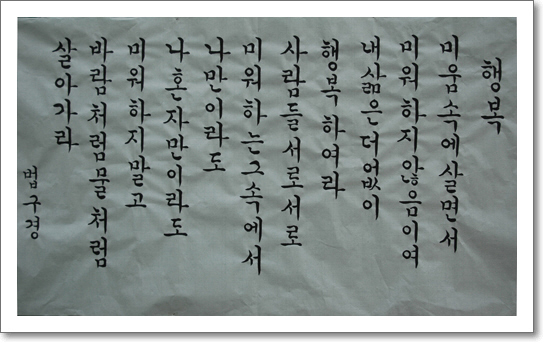 행복
미움속에살면서
미워하지않음이여
내삶은더없이
행복하여라
사람들서로서로
미워하는그속에서
나만이라도
나혼자만이라도
미워하지말고
바람처럼물처럼
살아가라
법구경